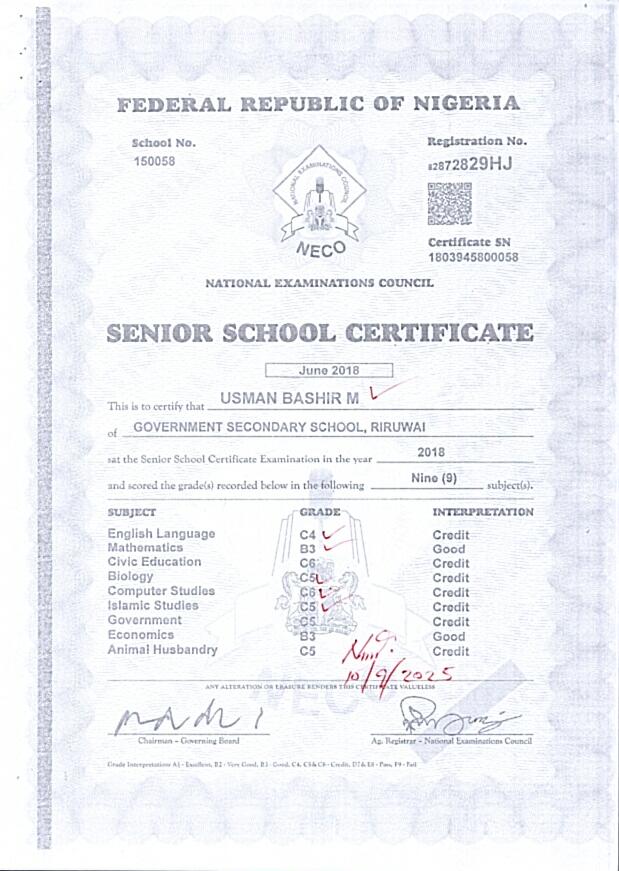 FEDERAL REPUBLIC OF NIGERIA
School No.
150058
Registration No.
82872829HJ
NATIONAL EXAMINATIONS COUNCIL
NECO
Certificate SN
1803945800058
NATIONAL EXAMINATIONS COUNCIL
SENIOR SCHOOL CERTIFICATE
June 2018
This is to certify that USMAN BASHIR M
of GOVERNMENT SECONDARY SCHOOL, RIRUWAI
sat the Senior School Certificate Examination in the year 2018
and scored the grade(s) recorded below in the following Nine (9) subject(s).
SUBJECT GRADE INTERPRETATION
English Language C4 Credit
Mathematics B3 Good
Civic Education C6 Credit
Biology C5 Credit
Computer Studies C6 Credit
Islamic Studies C5 Credit
Government C5 Credit
Economics B3 Good
Animal Husbandry C5 Credit
10/9/2025
ANY ALTERATION OR ERASURE RENDERS THIS CERTIFICATE VALUELESS
NECO
Chairman - Governing Board
Ag. Registrar - National Examinations Council
Grade Interpretations A1 - Excellent, B2 - Very Good, B3 - Good, C4, C5 & C6 - Credit, D7 & E8 - Pass, F9 - Fail